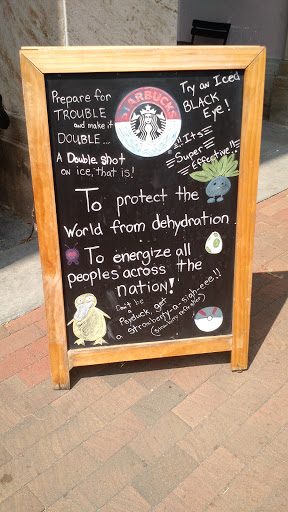 Prepare for
TROUBLE
and make it
DOUBLE...
A Double shot
on ice, that is!
STARBUCKS
Try an Iced
BLACK
Eye!
It's
Super
Effective!!
To protect the
World from dehydration
To energize all
peoples across the
nation!
Don't be
a
Psyduck, get
a strawberry-a-sigh-eee!!
(Strawberry Acai)